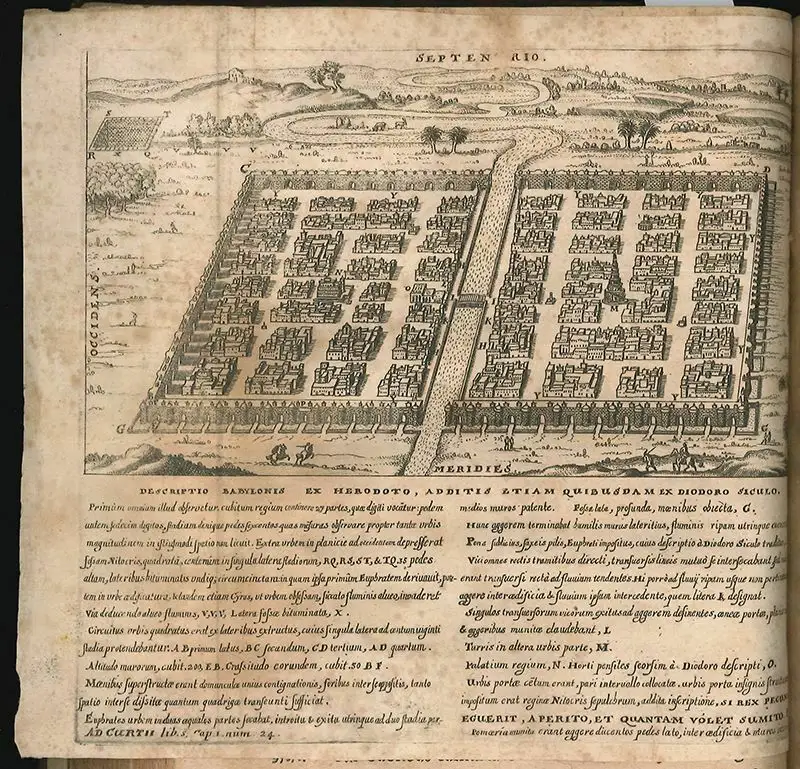 SEPTEN RIO.
S
T
R
X
Q
V
V
V
V
C
D
Y
Y
OCCIDENS
N
O
M
K
H
L
Y
G
G
MERIDIES
DESCRIPTIO BABYLONIS EX HERODOTO, ADDITIS ETIAM QUIBUSDAM EX DIODORO SICULO.
Primùm omnium illud observetur, cubitum regium continere 27 partes, quæ digiti vocātur: pedem
autem sedecim digitos, stadium denique pedes sexcentos quas mensuras observare propter tantæ urbis
magnitudinem in spatio non licuit. Extra urbem in planicie ad occidentem depresserat
Nitocris, quadratā, centenùm in singula latera stadiorum, RQ, RS, ST, & TQ. 35 pedes
altam, lateribus bituminatis undiq; circumcinctam in quam ipsa primùm Euphratem derivavit,
tem in urbe ædificatura, & tandem etiam Cyrus, ut urbem obsessam, siccato fluminis alveo, invaderet
Via deducendo alveo fluminis, V,V,V, Latera fossæ bituminata, X.
Circuitus urbis quadratus erat ex lateribus extructus, cuius singula latera ad centum viginti
stadia protendebantur. A B primum latus, B C secundum, C D tertium, A D quartum.
Altitudo murorum, cubit. 200, E B. Crassitudo eorundem, cubit. 50 B F.
Mœnibus superstructæ erant domunculæ unius contignationis, foribus inter se oppositis, tanto
spatio inter se dissitæ quantum quadrigæ transeunti sufficiat.
Euphrates urbem in duas æquales partes secabat, introitu & exitu utrinque ad duo stadia per
AD CURTII lib. 5. cap. 1. num. 24.
medios muros patente. Fossa lata, profunda, mœnibus obiecta, G.
Hunc aggerem terminabat humilis murus lateritius, fluminis ripam utrinque
Pons sublicius, saxeis pilis, Euphrati impositus, cuius descriptio à Diodoro Siculo
Vici omnes rectis tramitibus directi, transversis lineis mutuò se intersecabant
erant transversi rectà ad fluvium tendentes. Hi porrò ad fluvij ripam usque non
aggere inter ædificia & fluvium ipsum intercedente, quem litera K designat.
Singulos transversorum vicorum exitus ad aggerem desinentes, æneæ portæ,
& aggeribus munitæ claudebant, L
Turris in altera urbis parte, M.
Palatium regium, N. Horti pensiles seorsim à Diodoro descripti, O.
Urbis portæ cētum erant, pari intervallo collocatæ. urbis porta insignis
impositum erat reginæ Nitocris sepulchrum, addita inscriptione, SI REX
EGUERIT, APERITO, ET QUANTAM VOLET SUMITO
Pomœria munita erant aggere ducentos pedes lato, inter ædificia & muros